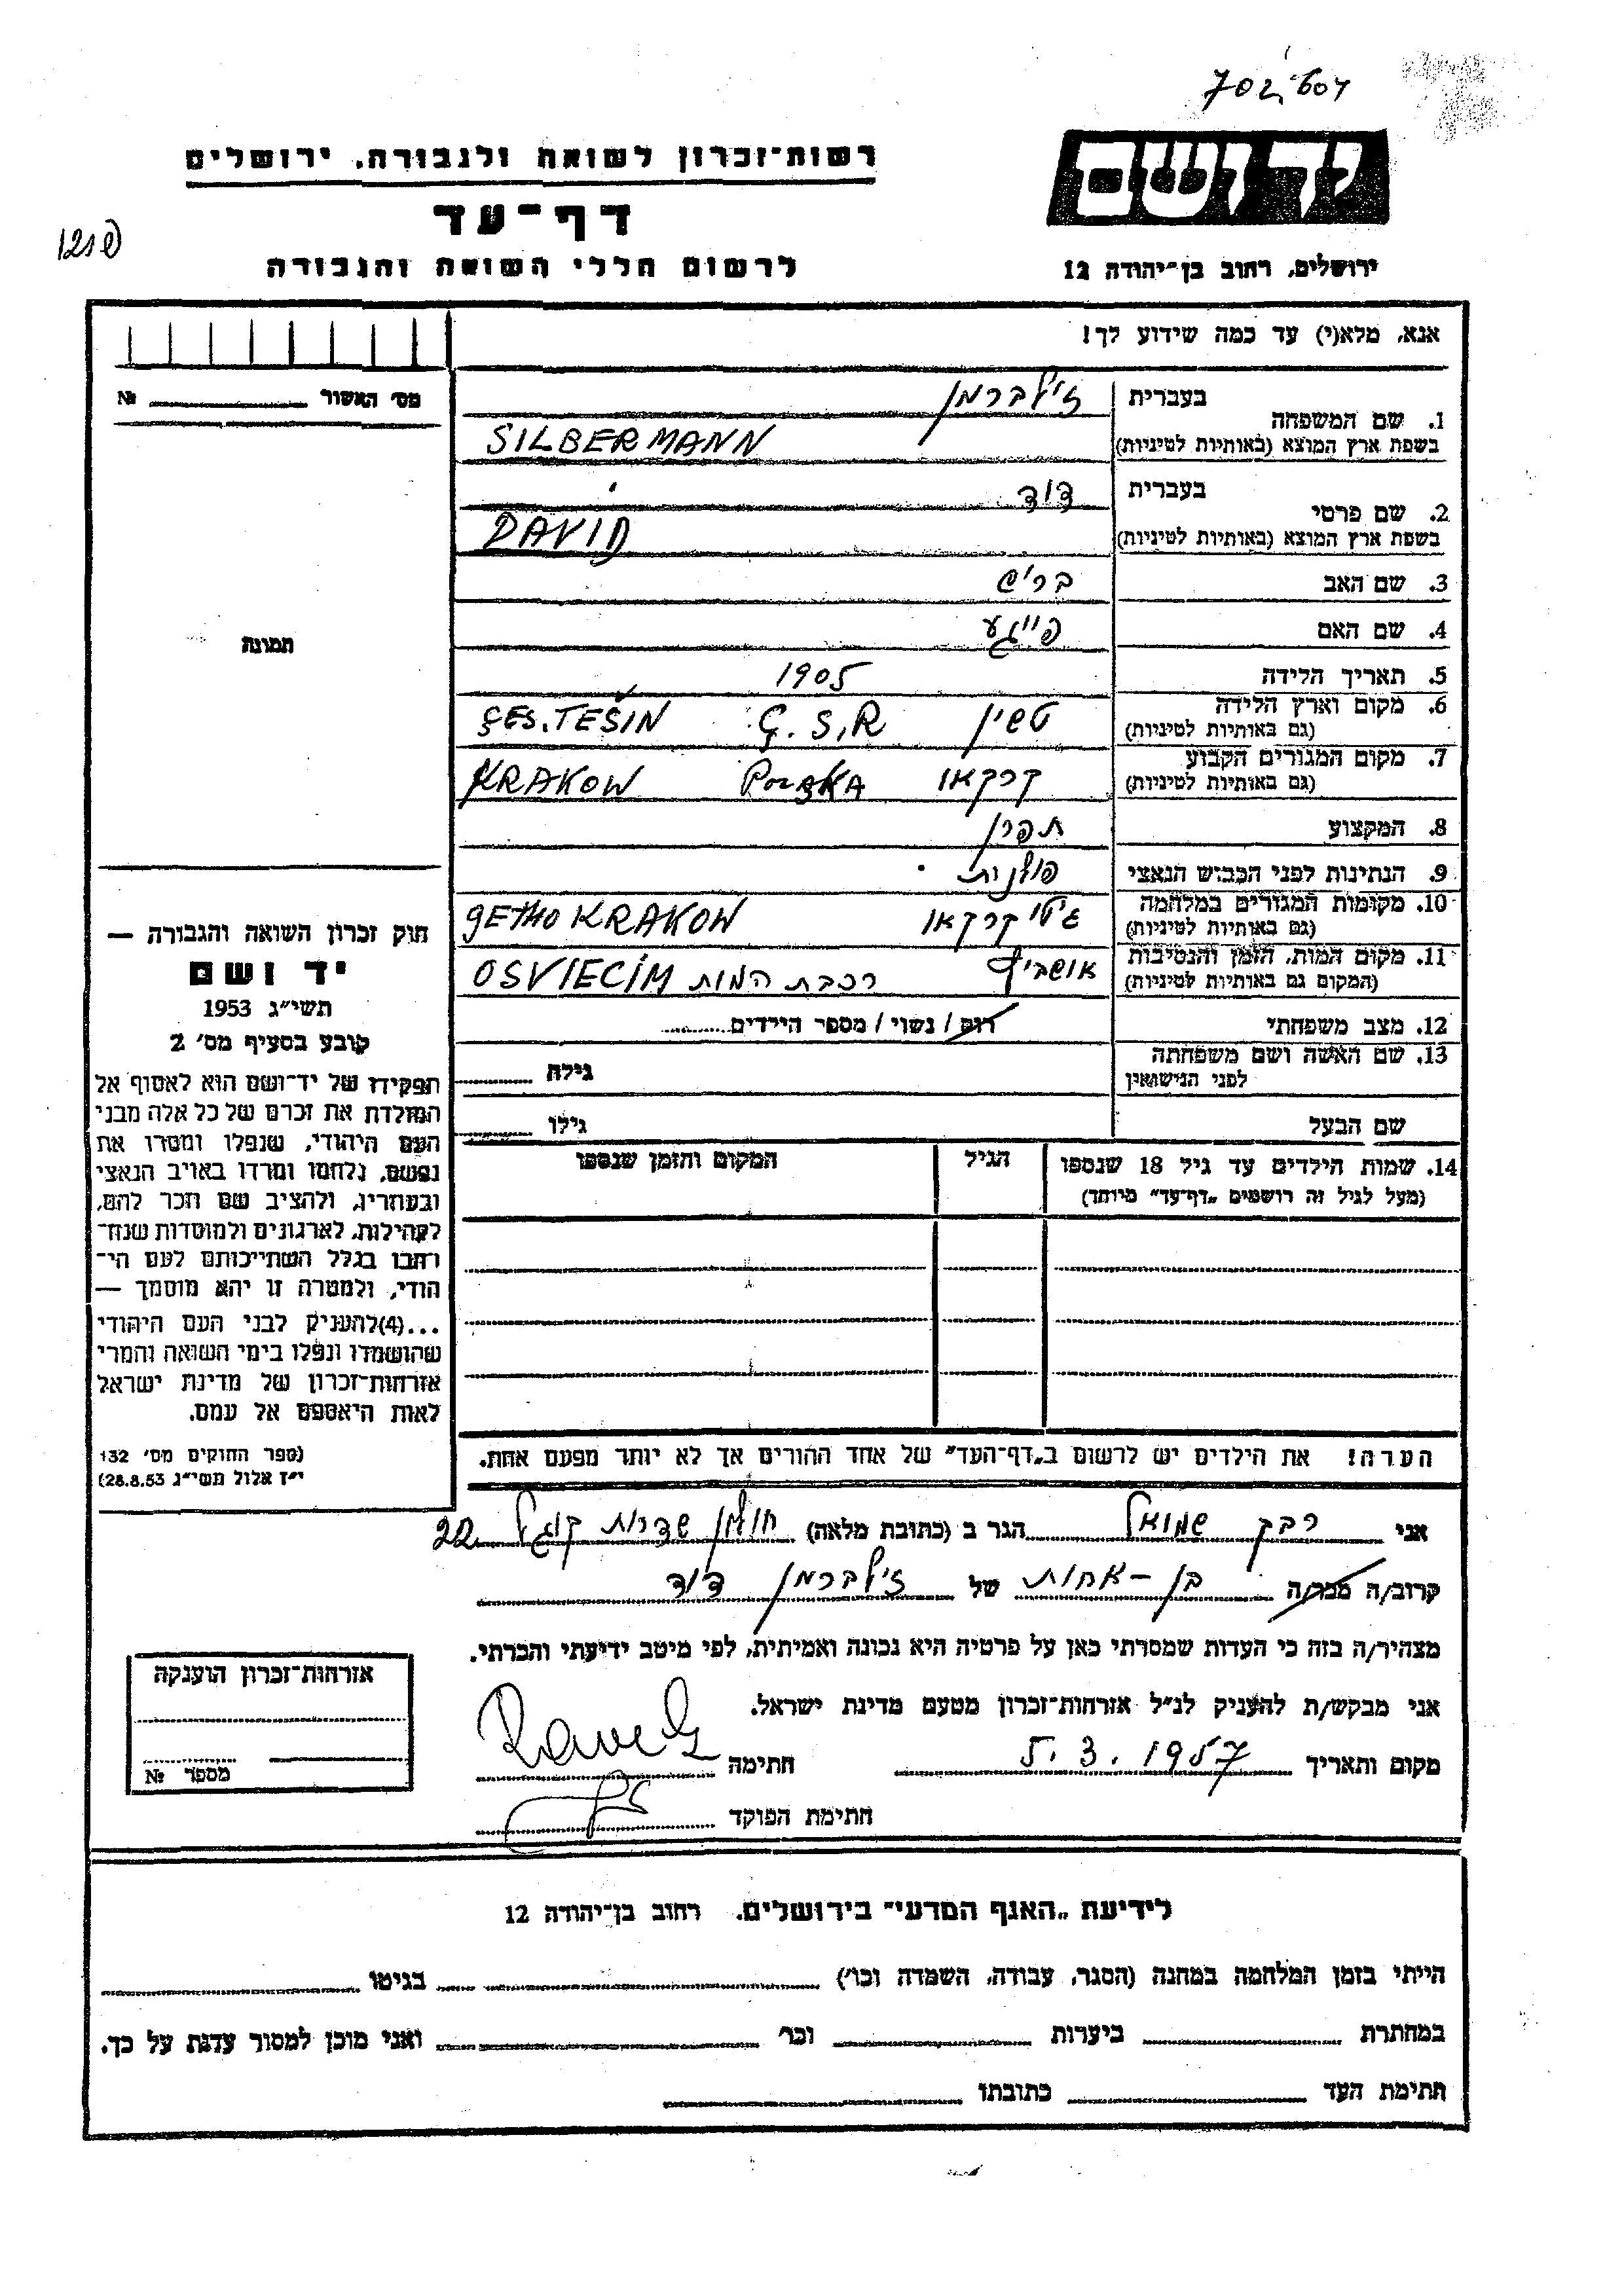 יד ושם
ירושלים, רחוב בן־יהודה 12
רשות־זכרון לשואה ולגבורה, ירושלים
דף־עד
לרשום חללי השואה והגבורה
אנא, מלא(י) עד כמה שידוע לך!
מס׳ האשור № 
1. שם המשפחה
בעברית זילברמן
בשפת ארץ המוצא (באותיות לטיניות) SILBERMANN
2. שם פרטי
בעברית דוד
בשפת ארץ המוצא (באותיות לטיניות) DAVID
3. שם האב בריש
4. שם האם פייגע
5. תאריך הלידה 1905
6. מקום וארץ הלידה
(גם באותיות לטיניות) טשין Č.S.R ČES. TEŠIN
7. מקום המגורים הקבוע
(גם באותיות לטיניות) קרקאו POLSKA KRAKOW
8. המקצוע תפרן
9. הנתינות לפני הכבוש הנאצי פולנית
10. מקומות המגורים במלחמה
(גם באותיות לטיניות) גיטו קרקאו GETHO KRAKOW
11. מקום המות, הזמן והנסיבות
(המקום גם באותיות לטיניות) אושביץ רכבת המות OSVIECIM
12. מצב משפחתי רוק / נשוי / מספר הילדים
13. שם האשה ושם משפחתה
לפני הנישואין גילה
שם הבעל גילו
14. שמות הילדים עד גיל 18 שנספו הגיל המקום והזמן שנספו
(מעל לגיל זה רושמים „דף־עד״ מיוחד)
הערה! את הילדים יש לרשום ב„דף־העד״ של אחד ההורים אך לא יותר מפעם אחת.
תמונה
חוק זכרון השואה והגבורה —
יד ושם
תשי״ג 1953
קובע בסעיף מס׳ 2
תפקידו של יד־ושם הוא לאסוף אל
המולדת את זכרם של כל אלה מבני
העם היהודי, שנפלו ומסרו את
נפשם, נלחמו ומרדו באויב הנאצי
ובעוזריו, ולהציב שם וזכר להם,
לקהילות, לארגונים ולמוסדות שנח־
רחבו בגלל השתייכותם לעם הי־
הודי, ולמטרה זו יהא מוסמך —
...(4)להעניק לבני העם היהודי
שהושמדו ונפלו בימי השואה והמרי
אזרחות־זכרון של מדינת ישראל
לאות היאספם אל עמם.
(ספר החוקים מס׳ 132
י״ז אלול תשי״ג 28.8.53)
אני רבק שמואל הגר ב (כתובת מלאה) חולון שדרות קוגל 22
קרוב/ה מכר/ה בן-אחות של זילברמן דוד
מצהיר/ה בזה כי העדות שמסרתי כאן על פרטיה היא נכונה ואמיתית, לפי מיטב ידיעתי והכרתי.
אני מבקש/ת להעניק לנ״ל אזרחות־זכרון מטעם מדינת ישראל.
מקום ותאריך 5.3.1957 חתימה
חתימת הפוקד
אזרחות־זכרון הוענקה
מספר №
לידיעת „האגף המדעי״ בירושלים, רחוב בן־יהודה 12
הייתי בזמן המלחמה במחנה (הסגר, עבודה, השמדה וכו׳) בגיטו
במחתרת ביערות וכו׳ ואני מוכן למסור עדות על כך.
חתימת העד כתובתו